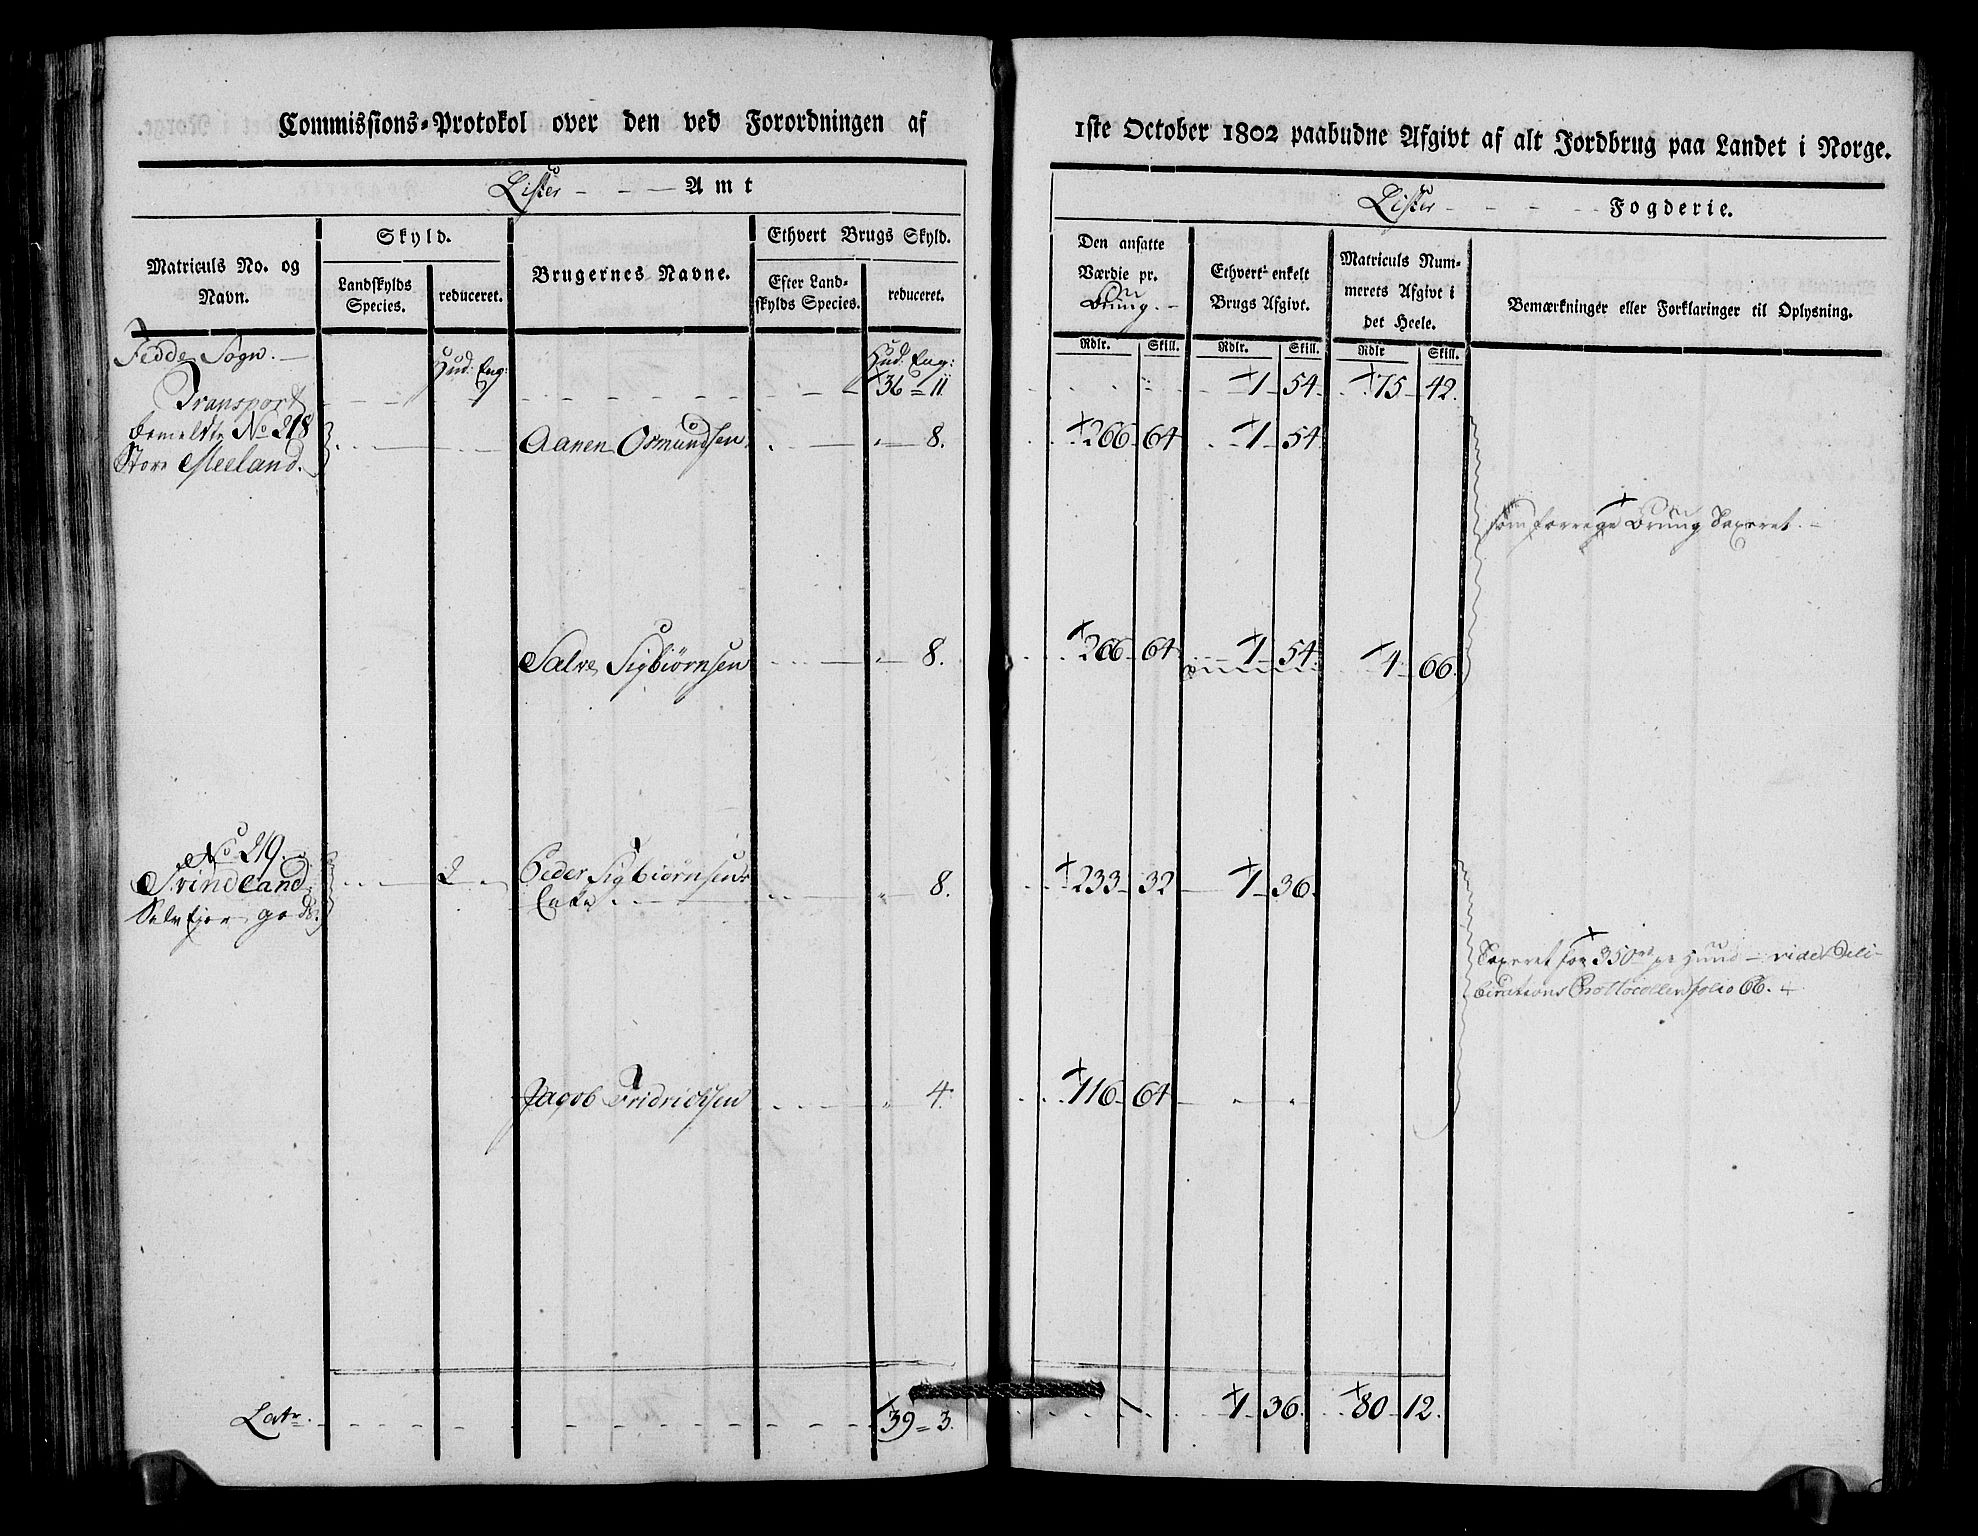 Commissions-Protokol over den ved Forordningen af
Lister - - - Amt
Matriculs No. og Navn.
Skyld.
Landskylds Species.
reduceret.
Brugernes Navne.
Ethvert Brugs Skyld.
Efter Landskylds Species.
reduceret.
Fedde Sogn. Hud: Eng: Hud: Eng:
Transport 36 = 11
bemeldte No 218 Aanen Osmundsen 8.
Store Meeland.
Salve Sigbiørnsen 8.
No 219.
Svindland 2 Peder Sigbiørnsens 8.
Selv Ejer gods. Enke
Jacob Fridrichsen 4.
Latr. 39 = 3.
1ste October 1802 paabudne Afgivt af alt Jordbrug paa Landet i Norge.
Lister - - - Fogderie.
Den ansatte Værdie pr. Brug.
Ethvert enkelt Brugs Afgivt.
Matriculs Nummerets Afgivt i det Heele.
Bemærkninger eller Forklaringer til Oplysning.
Rdlr. Skill. Rdlr. Skill. Rdlr Skill.
1 54 75 42.
266 64 1 54
som forrige Brug Taxeret.
266 64 1 54 4 66
233 32 1 36.
Taxeret for 350rd pr Hud - vide Deli-
berations Prottocollen folio 66.
116 64
1 36. 80 12.